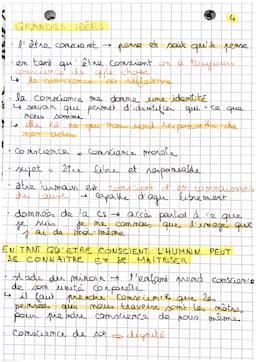 4
GRANDES IDÉES
l'être conscient → pense et sait qu'il pense
en tant qu'être conscient on a toujours
conscience de qqle chose
↳ la conscience est réflexive
la conscience me donne une identité
↳ savoir qui permet d'identifier qui ce que
nous sommes
↳ elle nous rend responsable de
conscience = conscience morale
sujet = être libre et responsable
être humain est conscient et en connaissance
de cause → capable d'agir librement
données de la cs → accès partiel à ce que
je suis je ne connais que l'image que
j'ai de moi-même
EN TANT QU'ETRE CONSCIENT L'HUMAIN PEUT
SE CONNAITRE ET SE MAITRISER
stade du miroir → l'enfant prend conscience
de son unité corporelle
↳ il faut prendre conscience que les
pensées qui nous traversent sont les nôtres
pour prendre conscience de nous même
conscience de soi ⇒ dignité